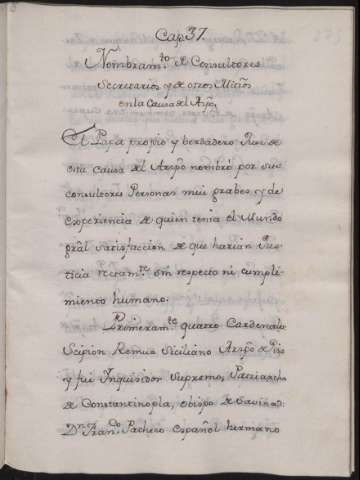 Cap. 37.
Nombram.to de Consultores
Secretarios, y de otros Minõs
en la Causa del Arzpo.
El Papa propio y berdadero Juez de
esta causa del Arzpo nombró por sus
consultores Personas mui grabes, y de
experiencia de quien tenia el Mundo
gral satisfaccion de que harian Jus-
ticia rectam.te sin respecto ni cumpli-
miento humano.
Primeram.te quatro Cardenales
Scipion Remua Siciliano Arzpo de Pisa
y fue Inquisidor supremo, Patriarcha
de Constantinopla, obispo de Savina:
Dn. Fran.co Pacheco español hermano